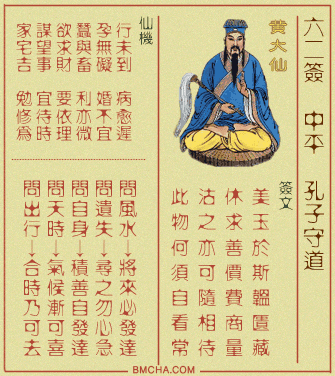 六二籤 中平 孔子守道
黃大仙
籤文
美玉於斯韞匵藏
休求善價費商量
沽之亦可隨相待
此物何須自看常
仙機
行未到 病愈遲
孕無礙 婚不宜
蠶與畜 利亦微
欲求財 要依理
謀望事 宜待時
家宅吉 勉修為
問風水→將來必發達
問遺失→尋之勿心急
問自身→積善自發達
問天時→氣候漸可喜
問出行→合時乃可去
BMCHA.COM